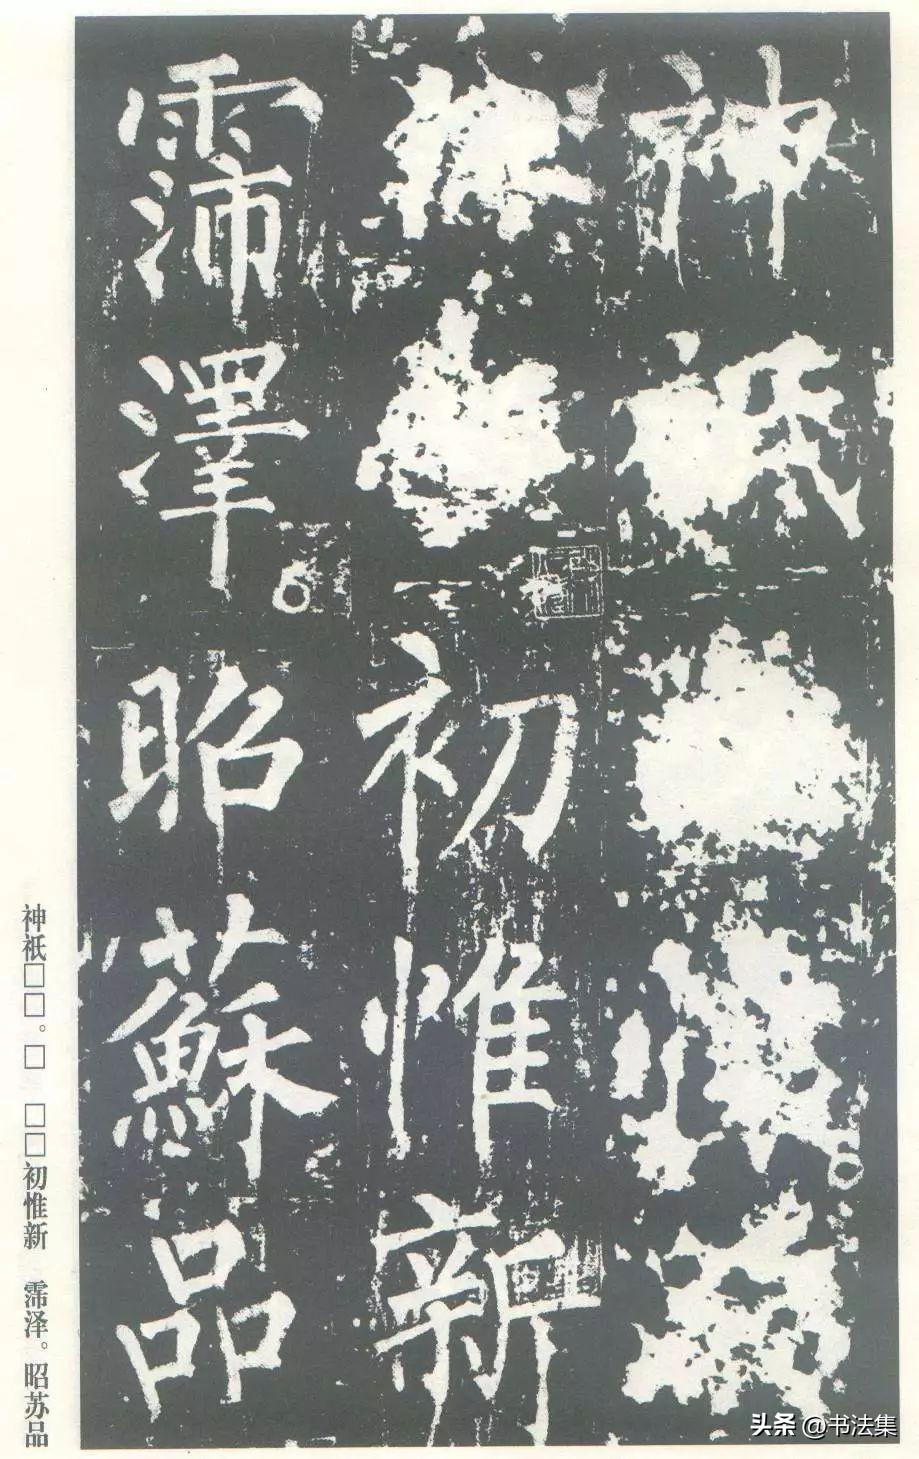 神祇
初惟新
霈澤昭蘇品
神祇□□。□ □□初惟新 霈泽。昭苏品
头条 @书法集